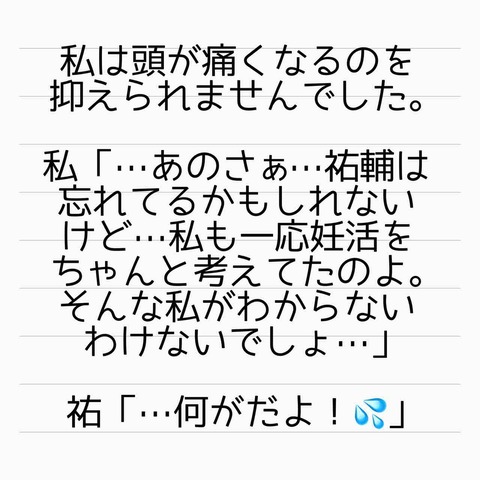 私は頭が痛くなるのを
抑えられませんでした。
私「…あのさぁ…祐輔は
忘れてるかもしれない
けど…私も一応妊活を
ちゃんと考えてたのよ。
そんな私がわからない
わけないでしょ…」
祐「…何がだよ！💦」